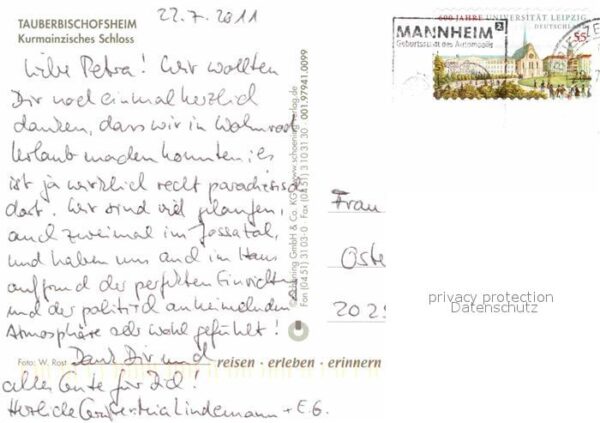 22.7.2011
TAUBERBISCHOFSHEIM
Kurmainzisches Schloss
Liebe Petra! Wir wollten
Dir noch einmal herzlich
danken, dass wir in
Urlaub machen konnten; es
ist ja wirklich recht paradiesisch
dort. Wir sind viel
auch zweimal im Jossatal,
und haben uns auch im Haus
aufgrund der perfekten Einrichtung
und der politisch anheimelnden
Atmosphäre sehr wohl gefühlt!
Dank Dir und
alles Gute für Dich!
Herzliche Lindemann + E.G.
Foto: W. Rost
reisen · erleben · erinnern
© Schöning GmbH & Co. KG · www.schoening-verlag.de
Fon (04 51) 31 03-0 · Fax (04 51) 3 10 31 30 · 001.97941.0099
MANNHEIM²
Geburtsstadt des Automobils
600 JAHRE UNIVERSITÄT LEIPZIG
DEUTSCHLAND
55
Frau
Oste
2025
privacy protection
Datenschutz